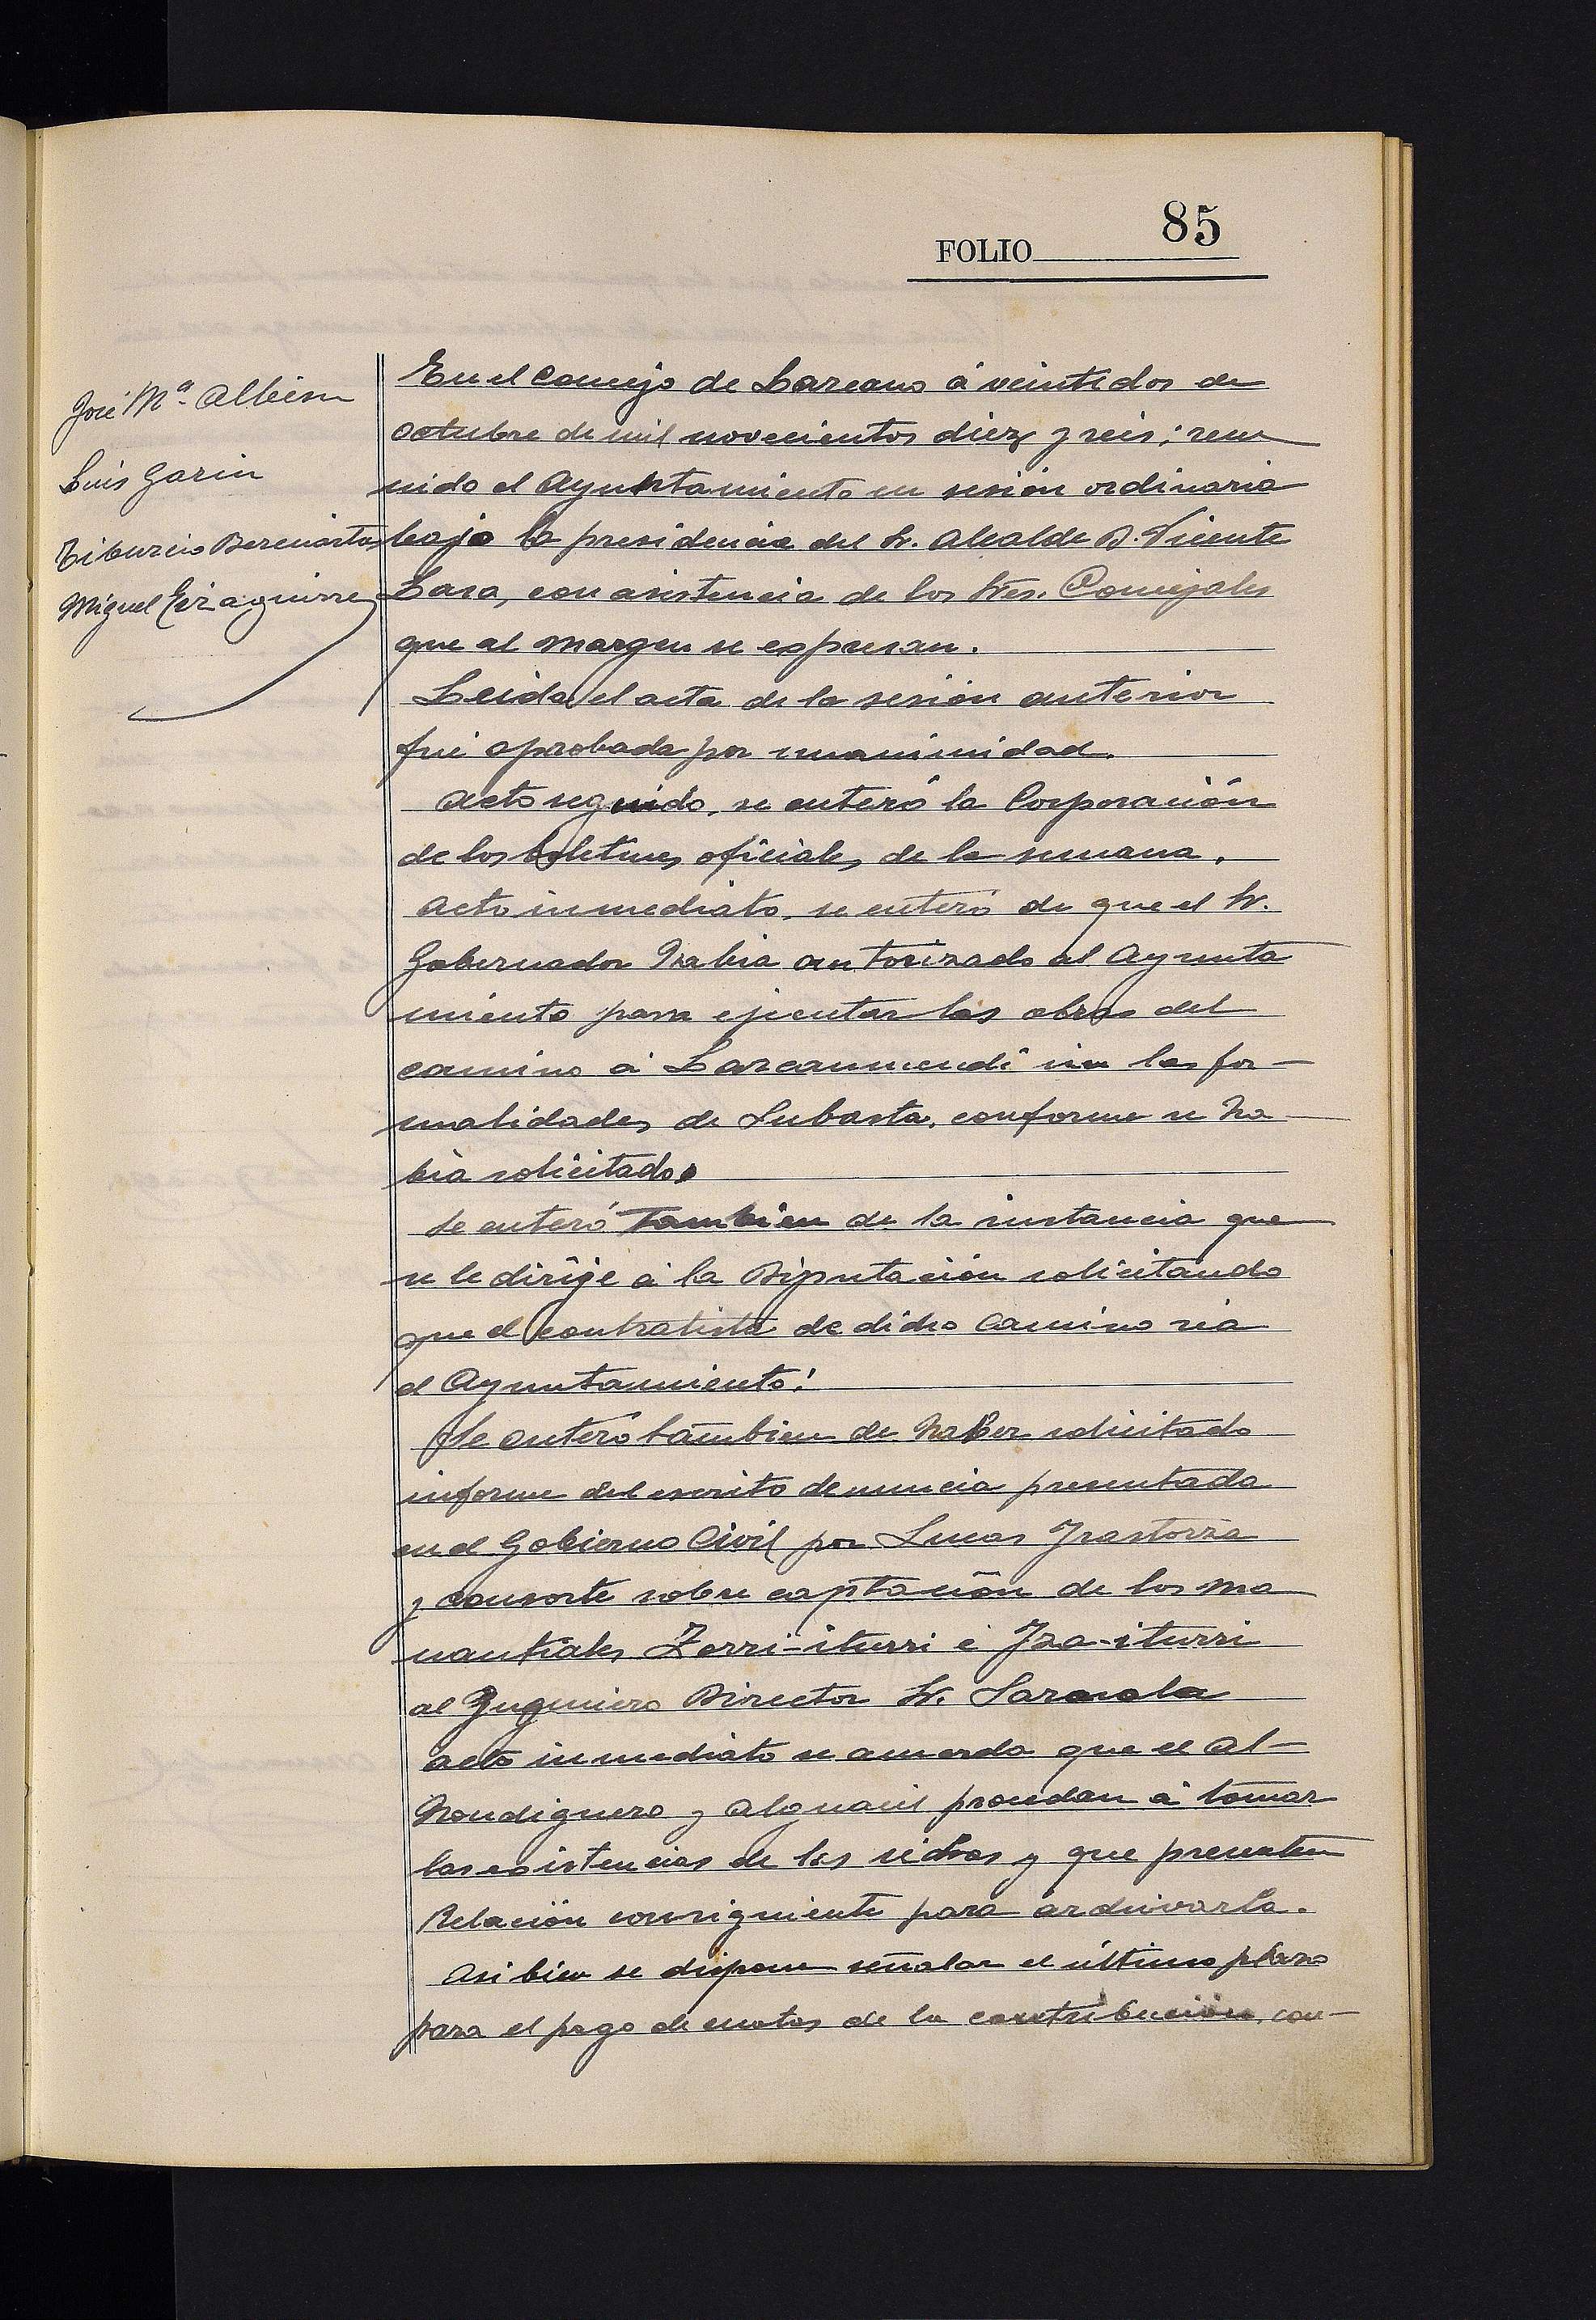 FOLIO 85
José Mª. Albisu
Luis Garin
Tiburcio Bereciartu
Miguel Eizaguirre
En el Concejo de Lazcano á veintidos de
octubre de mil novecientos diez y seis; reu
nido el Ayuntamiento en sesión ordinaria
bajo la presidencia del Sr. Alcalde D. Vicente
Lasa, con asistencia de los Sres. Concejales
que al margen se expresan.
Leida el acta de la sesión anterior
fué aprobada por unanimidad.
Acto seguido, se enteró la Corporación
de los boletines oficiales de la semana.
Acto inmediato, se enteró de que el Sr.
Gobernador habia autorizado al Ayunta
miento para ejecutar las obras del
camino á Lazcanmendi sin las for-
malidades de Subasta, conforme se ha-
bia solicitado.
Se enteró tambien de la instancia que
se le dirige á la Diputación solicitando
que el contratista de dicho camino sea
el Ayuntamiento.
Se enteró tambien de haber solicitado
informe del escrito denuncia presentada
en el Gobierno Civil por Lucas Irastorza
y consorte sobre captación de los ma
nantiales Zerri-iturri é Iza-iturri
al Yngeniero Director Sr. Sarasola
acto inmediato se acuerda que el Al-
hondiguero y alguacil procedan á tomar
las existencias de las sidras y que presenten
Relación consiguiente para archivarla.
Asi bien se dispone señalar el último plazo
para el pago de cuotas de la contribución, con-